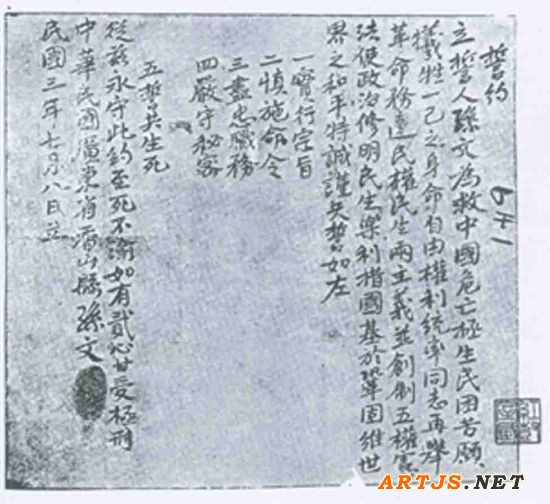 誓約
立誓人孫文為救中國危亡拯生民困苦願
犧牲一己之身命自由權利統率同志再舉
革命務達民權民生兩主義並創制五權憲
法使政治修明民生樂利措國基於鞏固維世
界之和平特誠謹矢誓如左
一實行宗旨
二慎施命令
三盡忠職務
四嚴守秘密
五誓共生死
從茲永守此約至死不渝如有貳心甘受極刑
中華民國廣東省香山縣孫文
民國三年七月八日立
641
ARTJS.NET